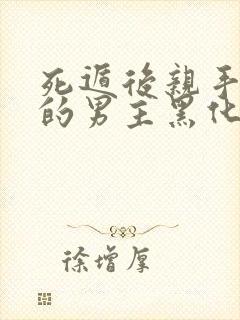 死遁後親手
的男主黑化
徐增厚